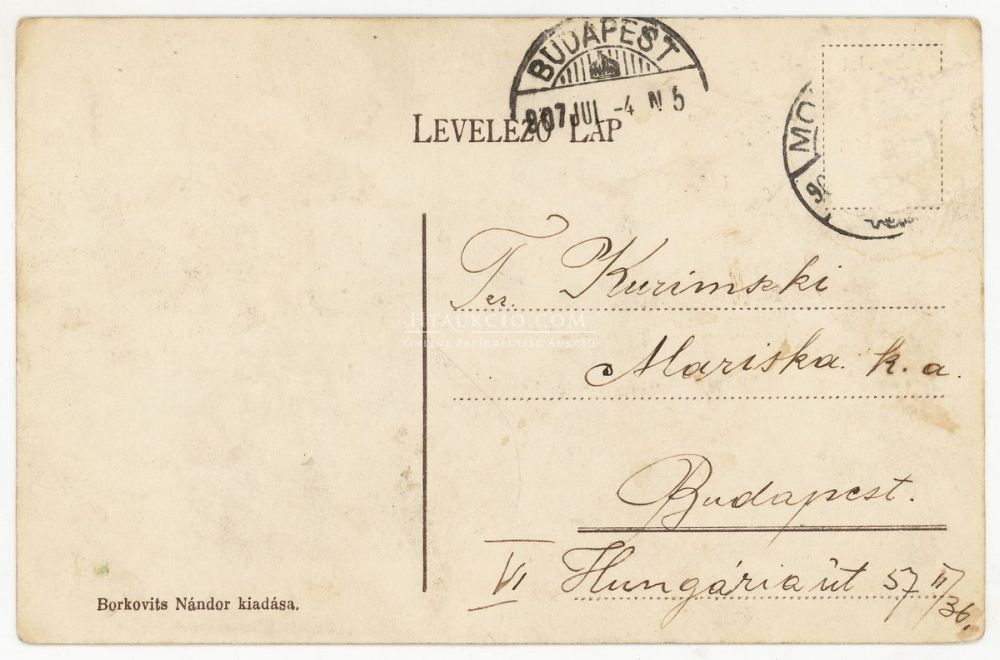 BUDAPEST
907 JUL -4 N 5
LEVELEZŐ LAP
MO
Ts. Kurimszki
HTAUKCIO.COM
ONLINE PAPÍRRÉGISÉG AUKCIÓ
Mariska k. a.
Budapest.
VI Hungária út 57 II/36.
Borkovits Nándor kiadása.